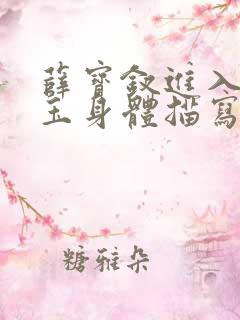 薛寶釵進入
玉身體描寫
糖雅朵